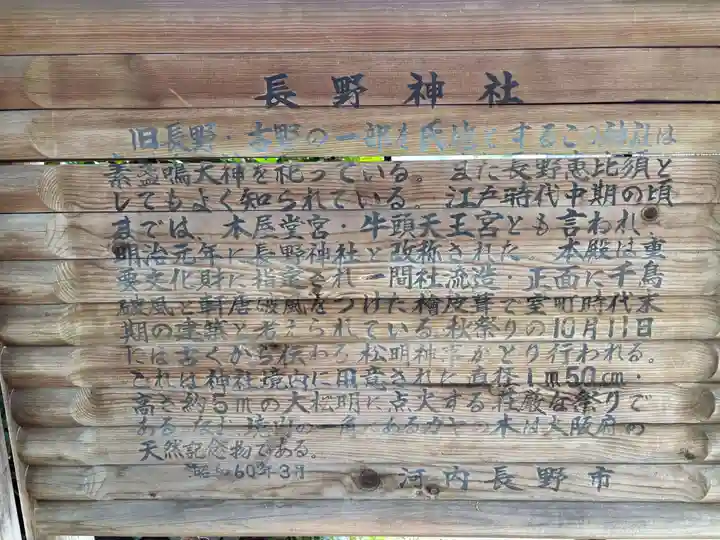 長野神社
旧長野・古野の一部を氏地とするこの神社は
素盞嗚大神を祀っている。また長野恵比須と
してもよく知られている。江戸時代中期の頃
までは、木屋堂宮・牛頭天王宮とも言われ、
明治元年に長野神社と改称された。本殿は重
要文化財に指定され一間社流造・正面に千鳥
破風と軒唐破風をつけた檜皮葺で室町時代末
期の建築と考えられている。秋祭りの10月11日
には古くから伝わる松明神事がとり行われる。
これは神社境内に用意された直径1m50cm・
高さ約5mの大松明に点火する荘厳な祭りで
ある。なお境内の一角にあるカヤの木は大阪府の
天然記念物である。
昭和60年3月 河内長野市